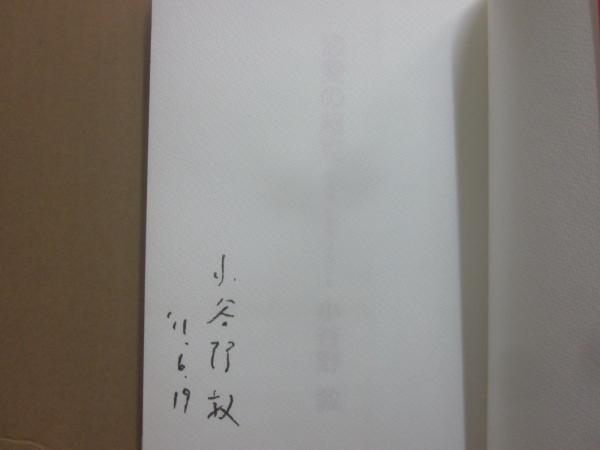 小谷野敦
'11.6.19